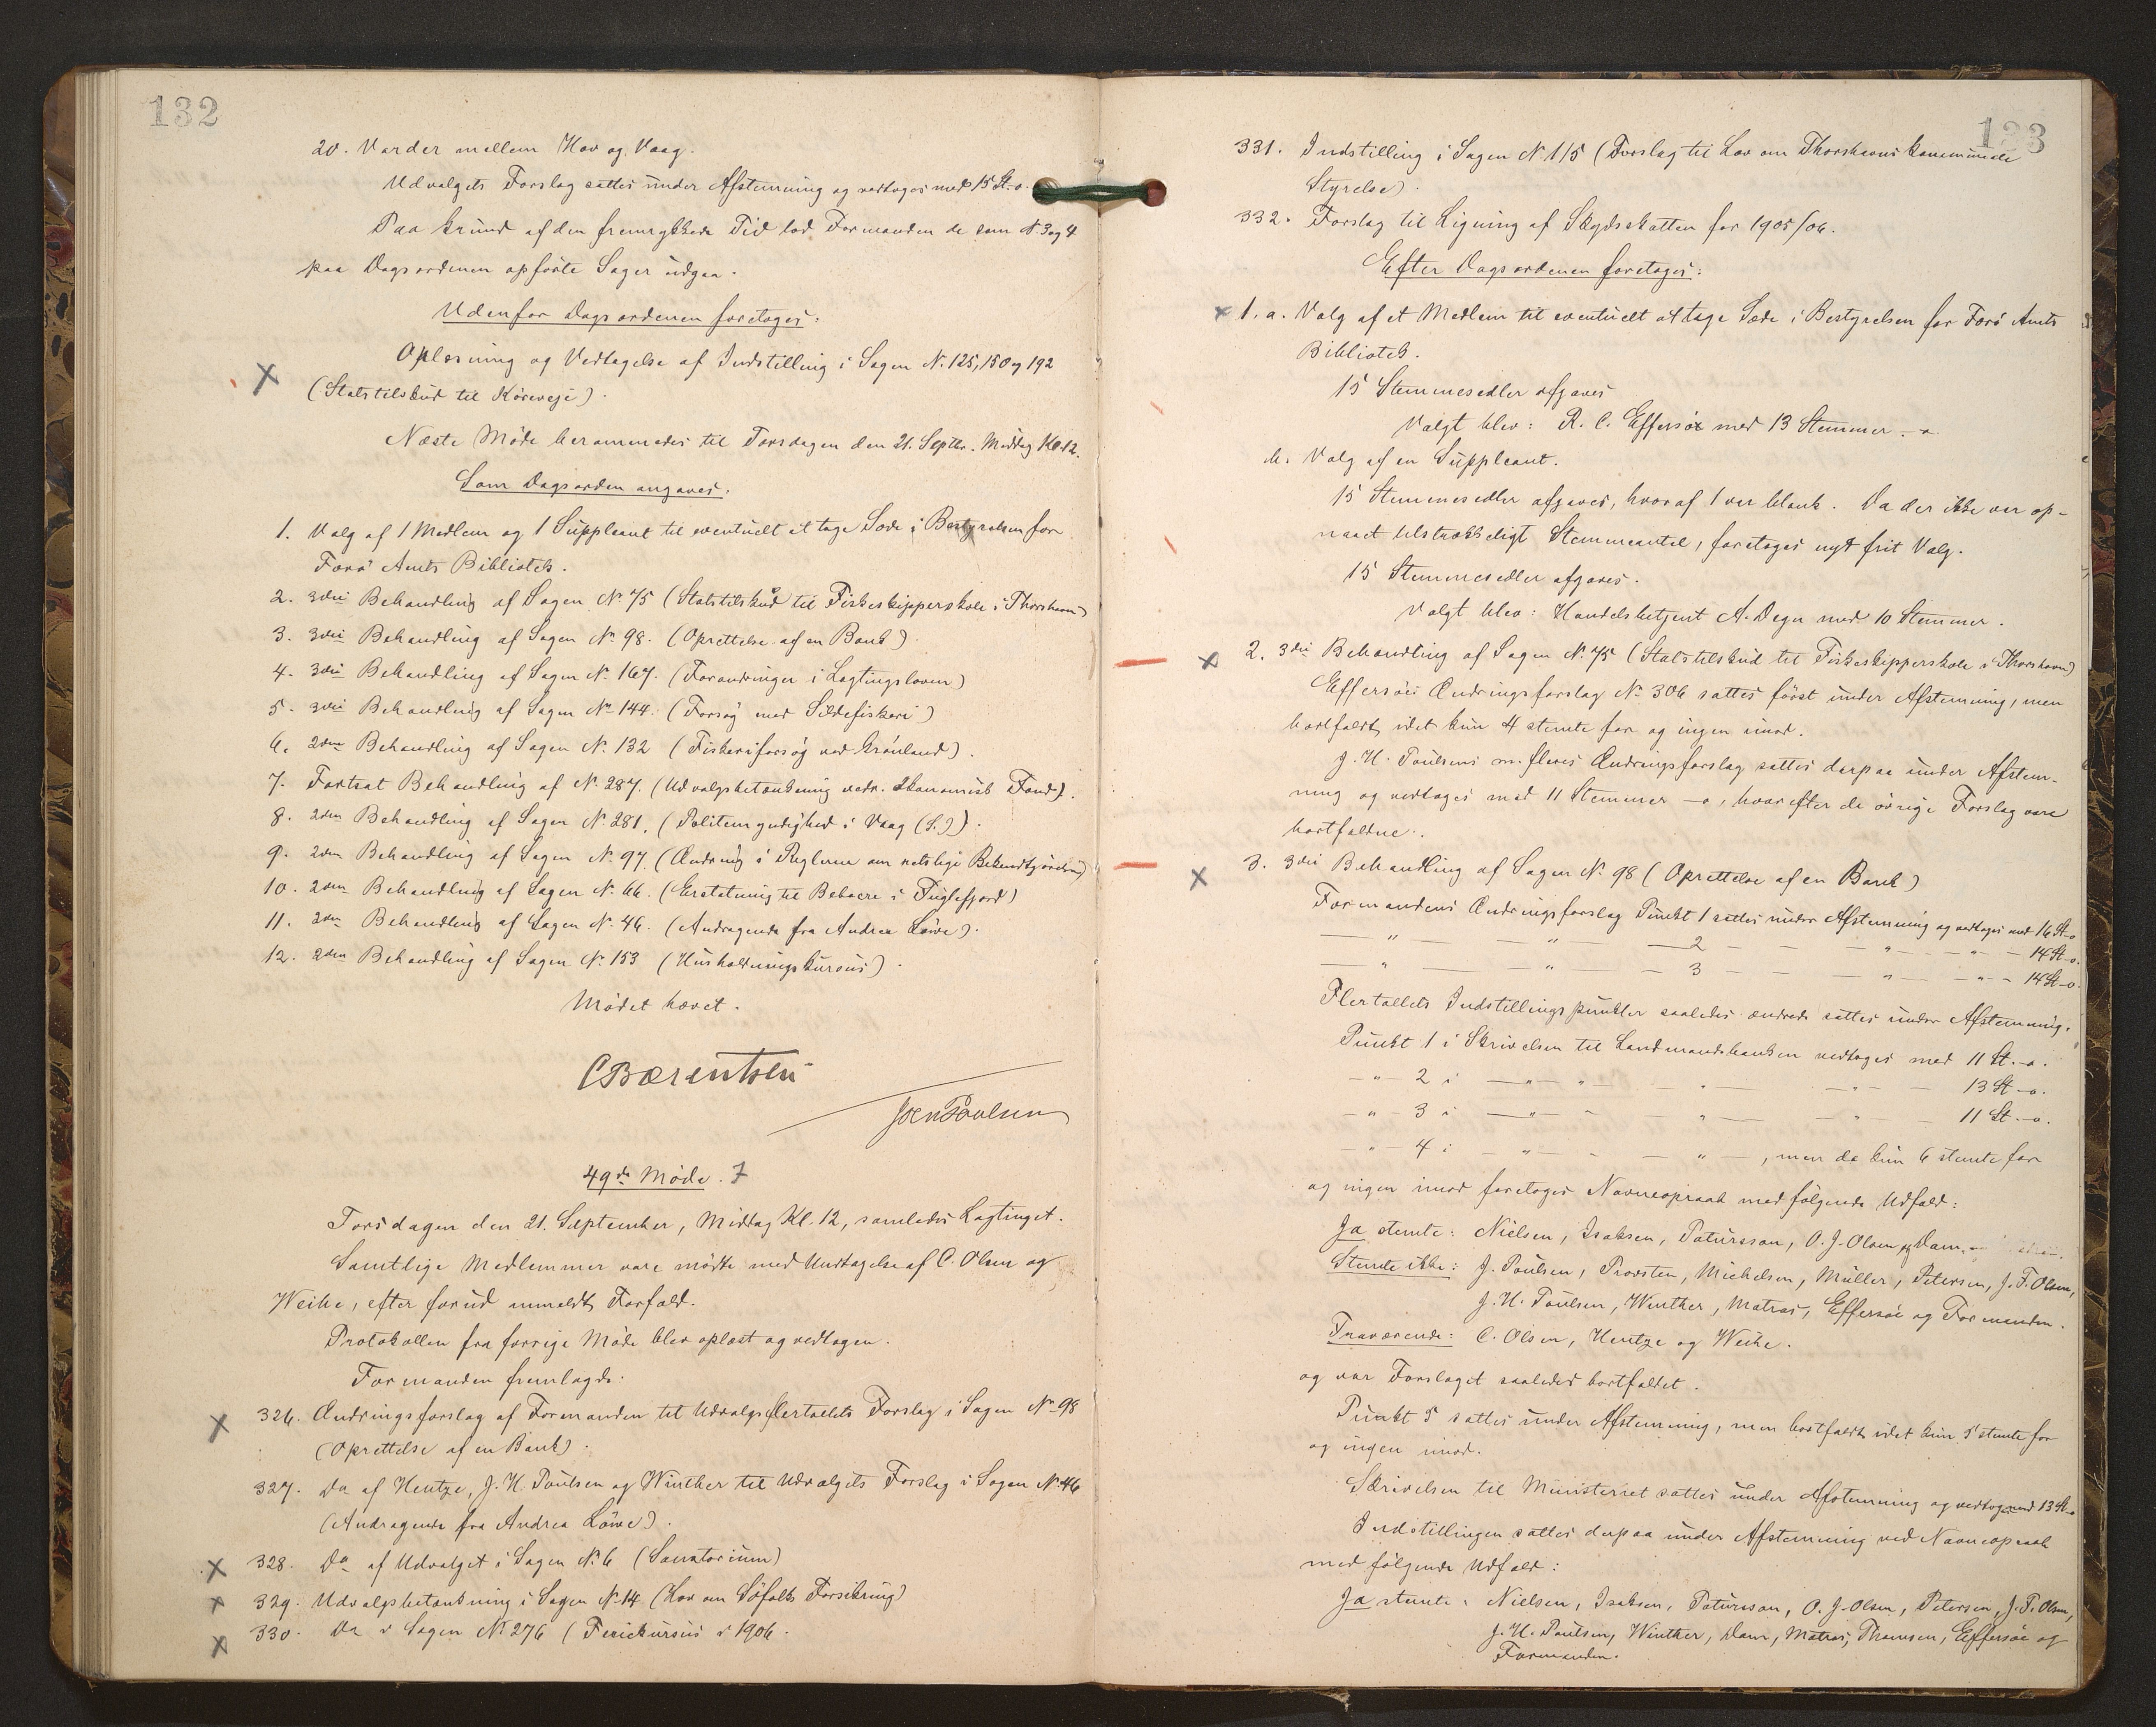 132
20. Varder mellem Hov og Vaag.
Udvalgets Forslag sattes under Afstemning og vedtoges med 15 St.-o.
Paa Grund af den fremrykkede Tid lod Formanden de som N. 3 og 4
paa Dagsordenen opførte Sager udgaa.
Udenfor Dagsordenen foretoges:
Oplæsning og Vedtagelse af Indstilling i Sagen N. 125, 150 og 192
(Statstilskud til Köreveje).
Næste Møde berammedes til Torsdagen den 21. Septbr. Middag Kl. 12.
Som Dagsorden angaves:
1. Valg af 1 Medlem og 1 Suppleant til eventuelt at tage Sæde i Bestyrelsen for
Færø Amts Bibliotek.
2. 3die Behandling af Sagen N. 75 (Statstilskud til Fiskeskipperskole i Thorshavn)
3. 3die Behandling af Sagen No 98. (Oprettelse af en Bank)
4. 3die Behandling af Sagen No 167. (Forandringer i Lagtingsloven)
5. 3die Behandling af Sagen No 144. (Forsøg med Sildefiskeri)
6. 2den Behandling af Sagen N. 132 (Fiskeriforsøg ved Grønland).
7. Fortsat Behandling af N. 287. (Udvalgsbetænkning vedr. økonomisk Fond).
8. 2den Behandling af Sagen N. 281. (Politimyndighed i Vaag (S.)).
9. 2den Behandling af Sagen N. 97. (Ændring i Reglerne om retslige Bekendtgørelser)
10. 2den Behandling af Sagen N. 66. (Erstatning til Beboere i Fuglefjord)
11. 2den Behandling af Sagen N. 46. (Andragende fra Andrea Löwe).
12. 2den Behandling af Sagen No 153 (Husholdningskursus).
Mødet hævet.
C Bærentsen
Joen Poulsen
49de Møde. 7
Torsdagen den 21. September, Middag Kl. 12, samledes Lagtinget.
Samtlige Medlemmer vare mødte med Undtagelse af C. Olsen og
Weihe, efter forud anmeldt Forfald.
Protokollen fra forrige Møde blev oplæst og vedtagen.
Formanden fremlagde:
326. Ændringsforslag af Formanden til Udvalgsflertallets Forslag i Sagen No 98
(Oprettelse af en Bank).
327. Do af Hentze, J. H. Poulsen og Winther til Udvalgets Forslag i Sagen N. 46
(Andragende fra Andrea Löwe).
328. Do af Udvalget i Sagen N. 6 (Sanatorium)
329. Udvalgsbetænkning i Sagen N. 14 (Lov om Søfolks Forsikring)
330. Do i Sagen N. 276 (Feriekursus i 1906.
133
331. Indstilling i Sagen N. 115 (Forslag til Lov om Thorshavns kommunale
Styrelse).
332. Forslag til Ligning af Skydsskatten for 1905/06.
Efter Dagsordenen foretoges:
1. a. Valg af et Medlem til eventuelt at tage Sæde i Bestyrelsen for Færø Amts
Bibliotek.
15 Stemmesedler afgaves
Valgt blev: R. C. Effersøe med 13 Stemmer.
b. Valg af en Suppleant.
15 Stemmesedler afgaves, hvoraf 1 var blank. Da der ikke var op-
naaet tilstrækkeligt Stemmeantal, foretoges nyt frit Valg.
15 Stemmesedler afgaves.
Valgt blev: Handelsbetjent A. Degn med 10 Stemmer.
2. 3die Behandling af Sagen N. 75 (Statstilskud til Fiskeskipperskole i Thorshavn)
Effersøes Ændringsforslag No 306 sattes først under Afstemning, men
bortfaldt, idet kun 4 stemte for og ingen imod.
J. H. Poulsens m. fleres Ændringsforslag sattes derpaa under Afstem-
ning og vedtoges med 11 Stemmer -o, hvorefter de øvrige Forslag vare
bortfaldne.
3. 3die Behandling af Sagen No 98 (Oprettelse af en Bank)
Formandens Ændringsforslag Punkt 1 sattes under Afstemning og vedtoges med 16 St-o
— " — — " — — 2 — — — " — — " — 14 St-o.
— " — — " — — 3 — — — " — — " — 14 St-o.
Flertallets Indstillingspunkter saaledes ændrede sattes under Afstemning.
Punkt 1 i Skrivelsen til Landmandsbanken vedtoges med 11 St.-o.
— " — 2 i — " — " — — " — — " — 13 St-o.
— " — 3 i — " — — " — — " — 11 St.-o.
— " — 4 i — " — — " —, men da kun 6 stemte for
og ingen imod foretoges Navneopraab med følgende Udfald:
Ja stemte: Nielsen, Isaksen, Patursson, O. J. Olsen og Dam.
Stemte ikke: J. Poulsen, Provsten, Michelsen, Müller, Petersen, J. F. Olsen,
J. H. Poulsen, Winther, Matras, Effersøe og Formanden.
Fraværende: C. Olsen, Hentze og Weihe.
og var Forslaget saaledes bortfaldet.
Punkt 5 sattes under Afstemning, men bortfaldt, idet kun 5 stemte for
og ingen imod.
Skrivelsen til Ministeriet sattes under Afstemning og vedtoges med 13 St-o
Indstillingen sattes derpaa under Afstemning ved Navneopraab
med følgende Udfald:
Ja stemte: Nielsen, Isaksen, Patursson, O. J. Olsen, Petersen, J. P. Olsen,
J. H. Poulsen, Winther, Dam, Matras, Thomsen, Effersøe og
Formanden.